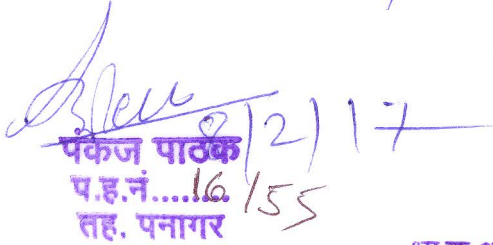 8/2/17
पंकज पाठक
प.ह.नं.....16/55
तह. पनागर